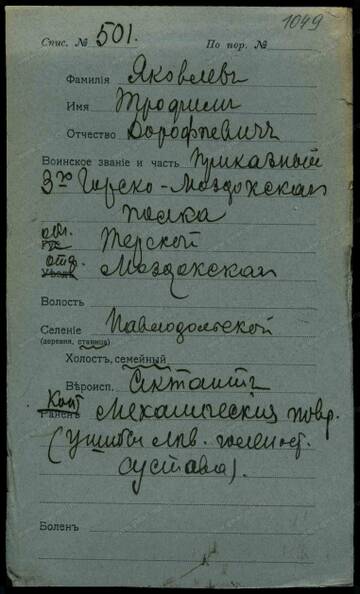 1049
Спис. № 501. По пор. №
Фамилія Яковлевъ
Имя Трофимъ
Отчество Дорофѣевичъ
Воинское званіе и часть Приказный
3го Горско-Моздокскаго
полка
обл. Терской
отд. Уѣздъ Моздокскаго
Волость
Селеніе Павлодольской
(деревня, станица)
Холостъ, семейный
Вѣроисп.
Конт Раненъ Механическія повр.
(ушибы лѣв. голеност.
сустава).
Боленъ